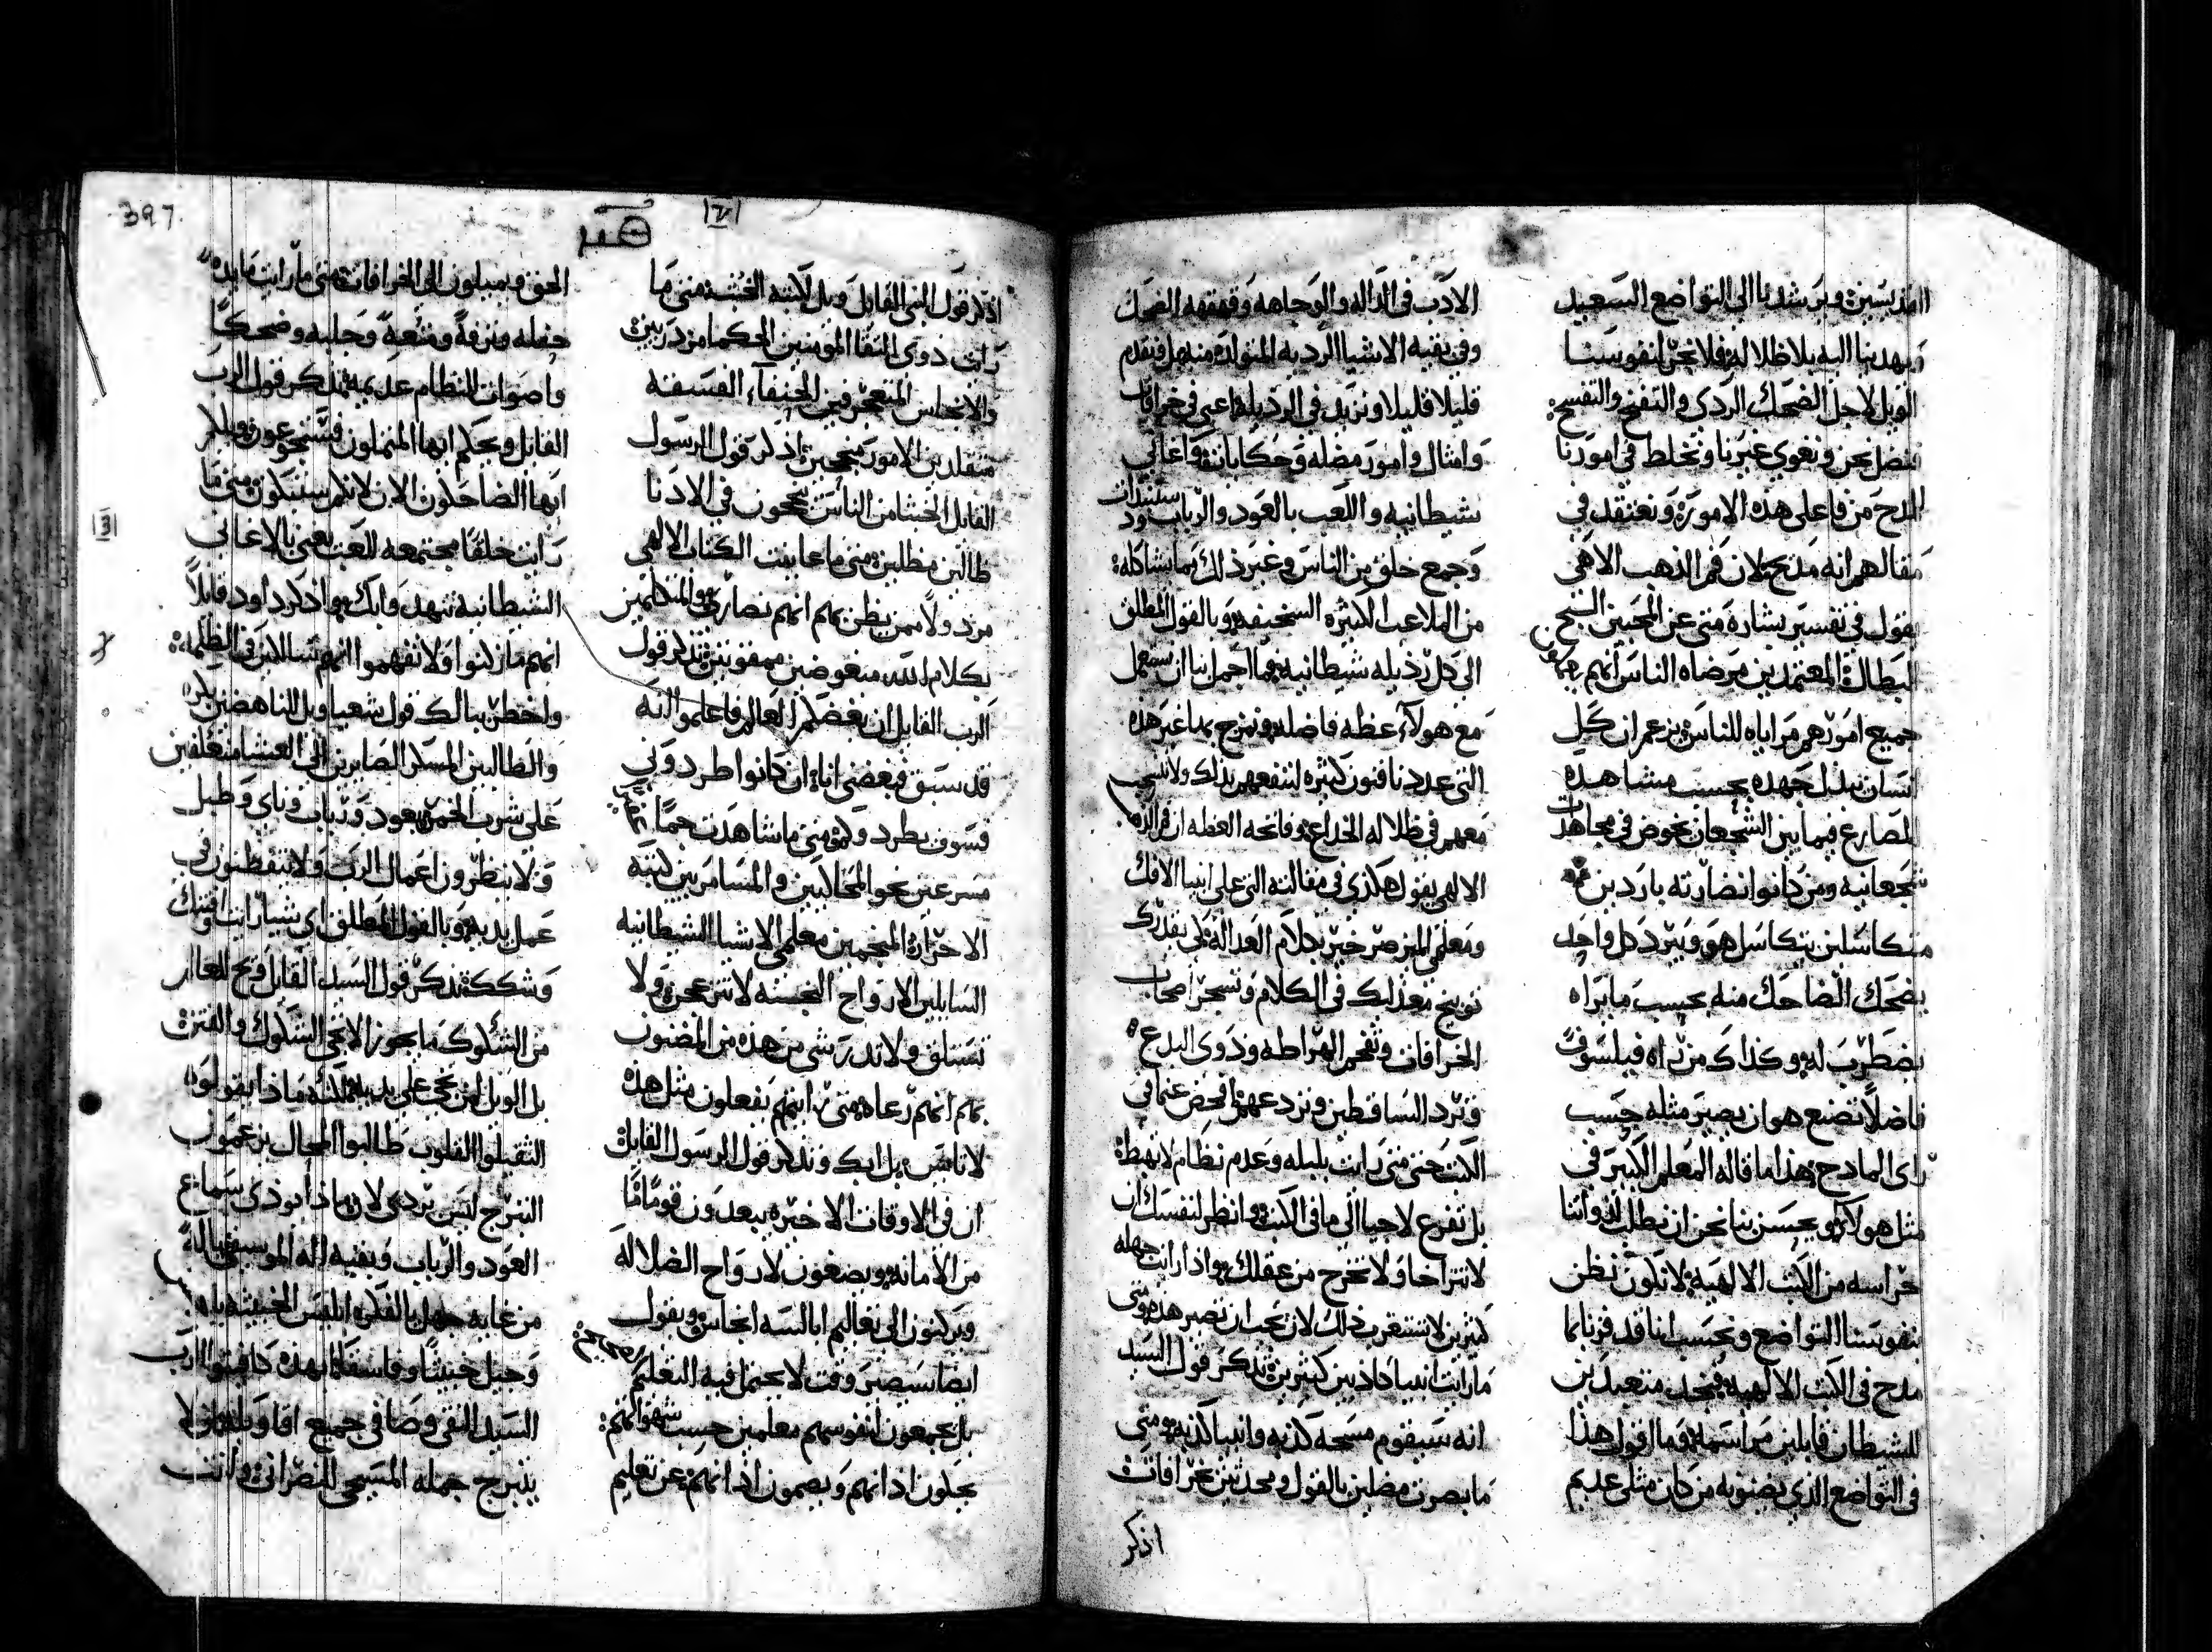 القديسين ويرشدنا الى التواضع السعيد
ويهدينا اليه بلا ظلاله فلا نحن لنفوسنا
الويل لاجل الضحك الردى والتفنخ والتفسح
فنضل نحن ونغوى غيرنا ونخلط في امورنا
المدح من فاعلى هذه الامور ونعتقد في
مقالهم انه مديح لان فم الذهب الالاهى
يقول في تفسير بشارة متى عن المحبين السبح
البطال المعتمدين مرضاه الناس انهم
جميع امورهم مراياه للناس يزعم ان كل
انسان يبذل جهده بحسب مشاهده
المصارع فيما بين الشجعان يخوض في مجاهدات
شجعانيه ومن كانوا نضارته باردين
متكاسلين يتكاسل هو ويبرد كل واحد
يضحك الضاحك منه بحسب ما يراه
يضطرب له وكذاك من يراه فيلسوفً
فاضلاً تصنع هو ان يصير مثله حسب
راى المادح هذا ما قاله المعلم الكبير في
مثل هولاى ويحسن بنا نحن ان نطلب لذواتنا
حراسه من الكتب الالهية لا نكون نظن
نفوسنا التواضع ونحسب اننا قد فزنا بما
مدح في الكتب الالهية فنجد متعبدين
للشيطان قايلين مراسمه وما اقول هذا
في التواضع الذي يصنوبه من كان مثلى عديم
الادب في الداله والوجاهه وقهقهه الضحك
وفي بقيه الاشيا الرديه المتولده منه بل فيقدم
قليلا قليلا ونزيد في الرذيله اعنى في خرافات
وامثال وامور مضله وحكايات واغانى
شيطانيه واللعب بالعود والرباب
وجمع خلق من الناس وغير ذلك بما يشاكله
من الملاعب الكثيره السخيفه وبالقول المطلق
الى كل رذيله شيطانيه فما اجمل بنا ان نستعمل
مع هولآء عظه فاضله ونمزج بها غير هذه
التى عددنا فنون كثيره لننفعهم بذلك ولا ننسحب
معهم في ظلاله الخداع وفاتحه العظه ان فم الذهب
الالهى يقول هكذى في مقالته التى على انبيا الافك
ومعلمى
توبيخ معذلك في الكلام وتسحر اصحاب
الخرافات وتفحم الهراطقه وذوى البدع
وترد الساقطين ونزدعهم
الكتب حتى متى رايت بليله وعدم نظام لا تهبط
بل تفرع لاجيا الى ما في الكتب وانظر لنفسك ان
لا تتراخا ولا تخرج من عقلك واذا رايت جهله
كثيرين لا تستغرب ذلك لان يجب ان تصير هذه ومتى
ما رايت انبيا كاذبين كثيرين تذكر قول السيد
انه سيقوم مسحه كذبه وانبيا كذبه ومتى
ما بصرت مضلين بالقول ومحدثين بخرافات
اذكر
397
اذكر قول النبى القايل ويل لكتبه الخبث متى ما
رايت ذوى التقا المومنين الحكما مزدريين
والانجاس المتعجرفين الحنفآء الفسقه
متقلدين الامور منجحين اذكر قول الرسول
القايل الخبثا من الناس ينجحون في الادنا
ضالين مظلين متى ما عاينت الكتاب الالهى
مزدولاً ممن يظن بهم انهم نصارى والمتكلمين
بكلام الله مبغوضين ممقوتين تذكر قول
الرب القايل ان يبغضكم العالم فاعلموا انه
قد سبق فبغضنى انا ان كانوا طردونى
فسوف يطردوكم متى ما شاهدت جمعًا
مسرعين نحو المحالين والمسامرين كتبه
الاحراز المنجمين معلمى الاشيا الشيطانيه
السايلين الارواح النجسه لا تنزعج ولا
تقلق ولا تدر شى من هذه من المضنون
بهم انهم رعاه متى رايتهم يفعلون مثل هذه
لا تاس بل ابك وتذكر قول الرسول القايل
ان في الاوقات الاخيره يبعدون قوماً ما
من الامانه ويصغون لارواح الضلاله
ويركنون الى تعاليم ابالسه انجاس ويقول
ايضا سيصير وقت لا يحتمل فيه التعليم
بل يجمعون لنفوسهم معلمين حسب شهواتهم
يحكون اذانهم ويصمون اذانهم عن تعليم
الحق ويميلون الى الخرافات متى ما رايت مايده
حفله ونزهةً ومتعةً وجلبه وضحكاً
واصوات النظام عديمه تذكر قول الرب
القايل ويحكم ايها الممتلون فستجوعون ويلكم
ايها الضاحكون الان لانكم ستبكون متى ما
رايت خلقًا مجتمعه للعب يعنى بالاغانى
الشيطانية تنهد وابك واذكر داود قايلاً
انهم ما ركنوا ولا تفهموا انهم يتسالكون في الظلمه
واخطر ببالك قول شعيا ويل للناهضين بكره
والطالبين المسكر الصابرين الى العشا متعلقين
على شرب الخمر بعود ورباب وناى وطبل
ولا ينظرون اعمال الرب ولا يتفطنون في
عمل يديه وبالقول المطلق اى شيا رايت افتنك
وشككك تذكر قول السيد القايل ويح للعالم
من الشكوك ما يجوز الا تجى الشكوك والفتن
بل الويل لمن تجى على يديه لكنه ماذا يقولوه
الثقيلوا القلوب طالبوا المحال يزعمون
التبرج ليس بردى لان ماذا يوذى سماع
العود والرباب وبقيه اله الموسيقى ياله
من غايه جهل
وجيل خبيثًا وفاسقًا ابهذه كافيتوا الرب
السيد النقى وصا في جميع اقاويله ان لا
يتبرج جمله المسيحى للنصرانى وانت